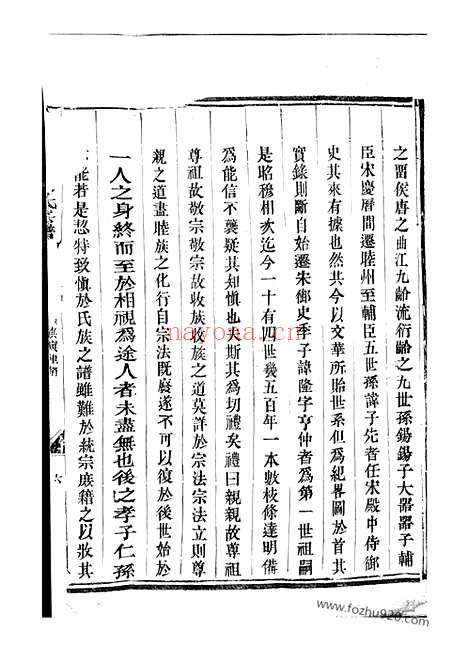 之畱侯唐之曲江九齡流衍齡之九世孫錫錫子大器器子輔
臣宋慶曆間遷睦州至輔臣五世孫諱子先者任宋殿中侍御
史其來有據也然其今以文華所胎世系但爲紀畧圖於首其
實錄則斷自始遷朱御史季子諱隆字亨仲者爲第一世祖嗣
是昭穆相次迄今一十有四世幾五百年一本數枝條達明備
爲能信不襲疑其知愼也夫斯其爲切禮矣禮曰親親故尊祖
尊祖故敬宗敬宗故收族收族之道莫詳於宗法宗法立則尊
親之道盡睦族之化行自宗法旣廢遂不可以復於後世始於
一人之身終而至於相視爲途人者未盡無也後之孝子仁孫
能若是惄特致愼於氏族之譜雖難於統宗庶籍之以收其
六
nayona.cn
www.fozhu920.com